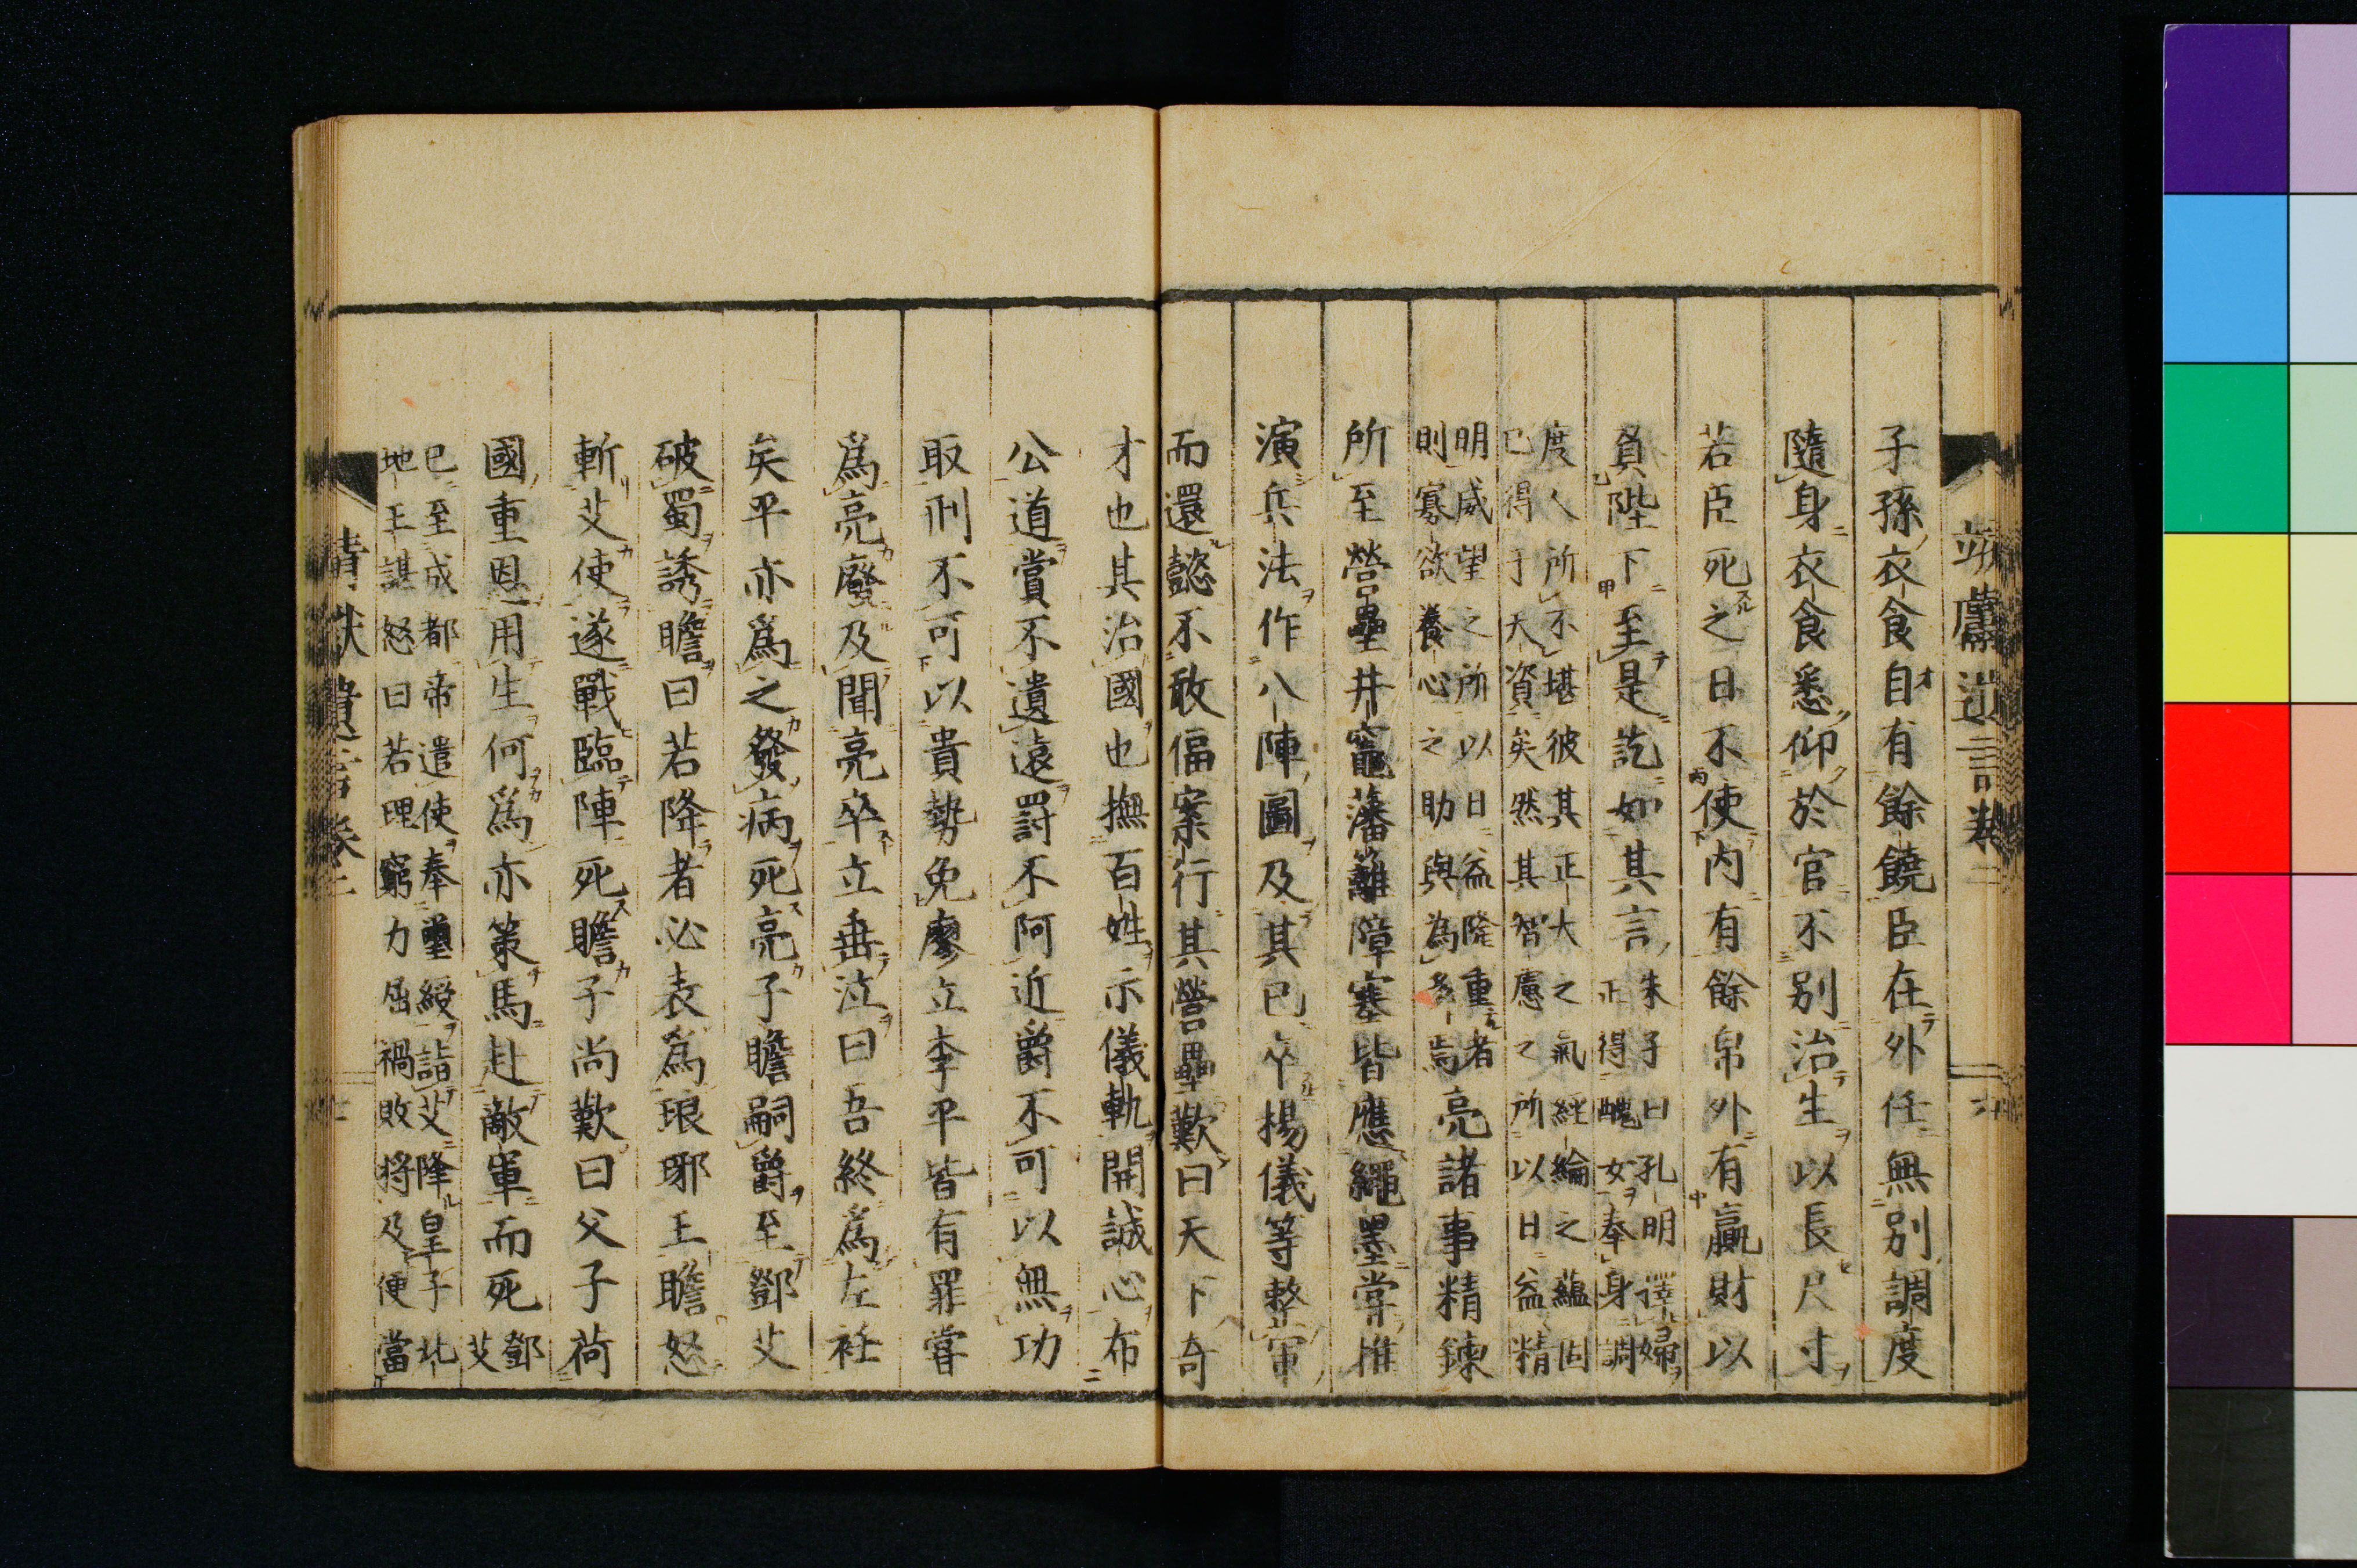 子孫衣食自有餘饒臣在外任無別調度
隨身衣食悉仰於官不別治生以長尺寸
若臣死之日不使内有餘帛外有贏財以
負陛下至是訖如其言朱子曰孔明擇婦
正得醜女奉身調
度人所不堪彼其正大之氣經綸之蘊固
已得于天資矣然其智慮之所以日益精
明威望之所以日益隆重者
則寡欲養心之助與為多焉亮諸事精錬
所至營壘井竈藩籬障塞皆應繩墨嘗推
演兵法作八陣圖及其已卒楊儀等整軍
而還懿不敢偪案行其營壘歎曰天下奇
才也其治國也撫百姓示儀軌開誠心布
公道賞不遺遠罰不阿近爵不可以無功
取刑不可以貴勢免廖立李平皆有罪嘗
爲亮廢及聞亮卒立垂泣曰吾終爲左衽
矣平亦爲之發病死亮子瞻嗣爵至鄧艾
破蜀誘瞻曰若降者必表爲琅邪王瞻怒
斬艾使遂戰臨陣死瞻子尚歎曰父子荷
國重恩用生何爲亦策馬赴敵軍而死鄧
艾
已至成都帝遣使奉璽綬詣艾降皇子北
地王諶怒曰若理窮力屈禍敗將及便當
靖獻遺言卷二